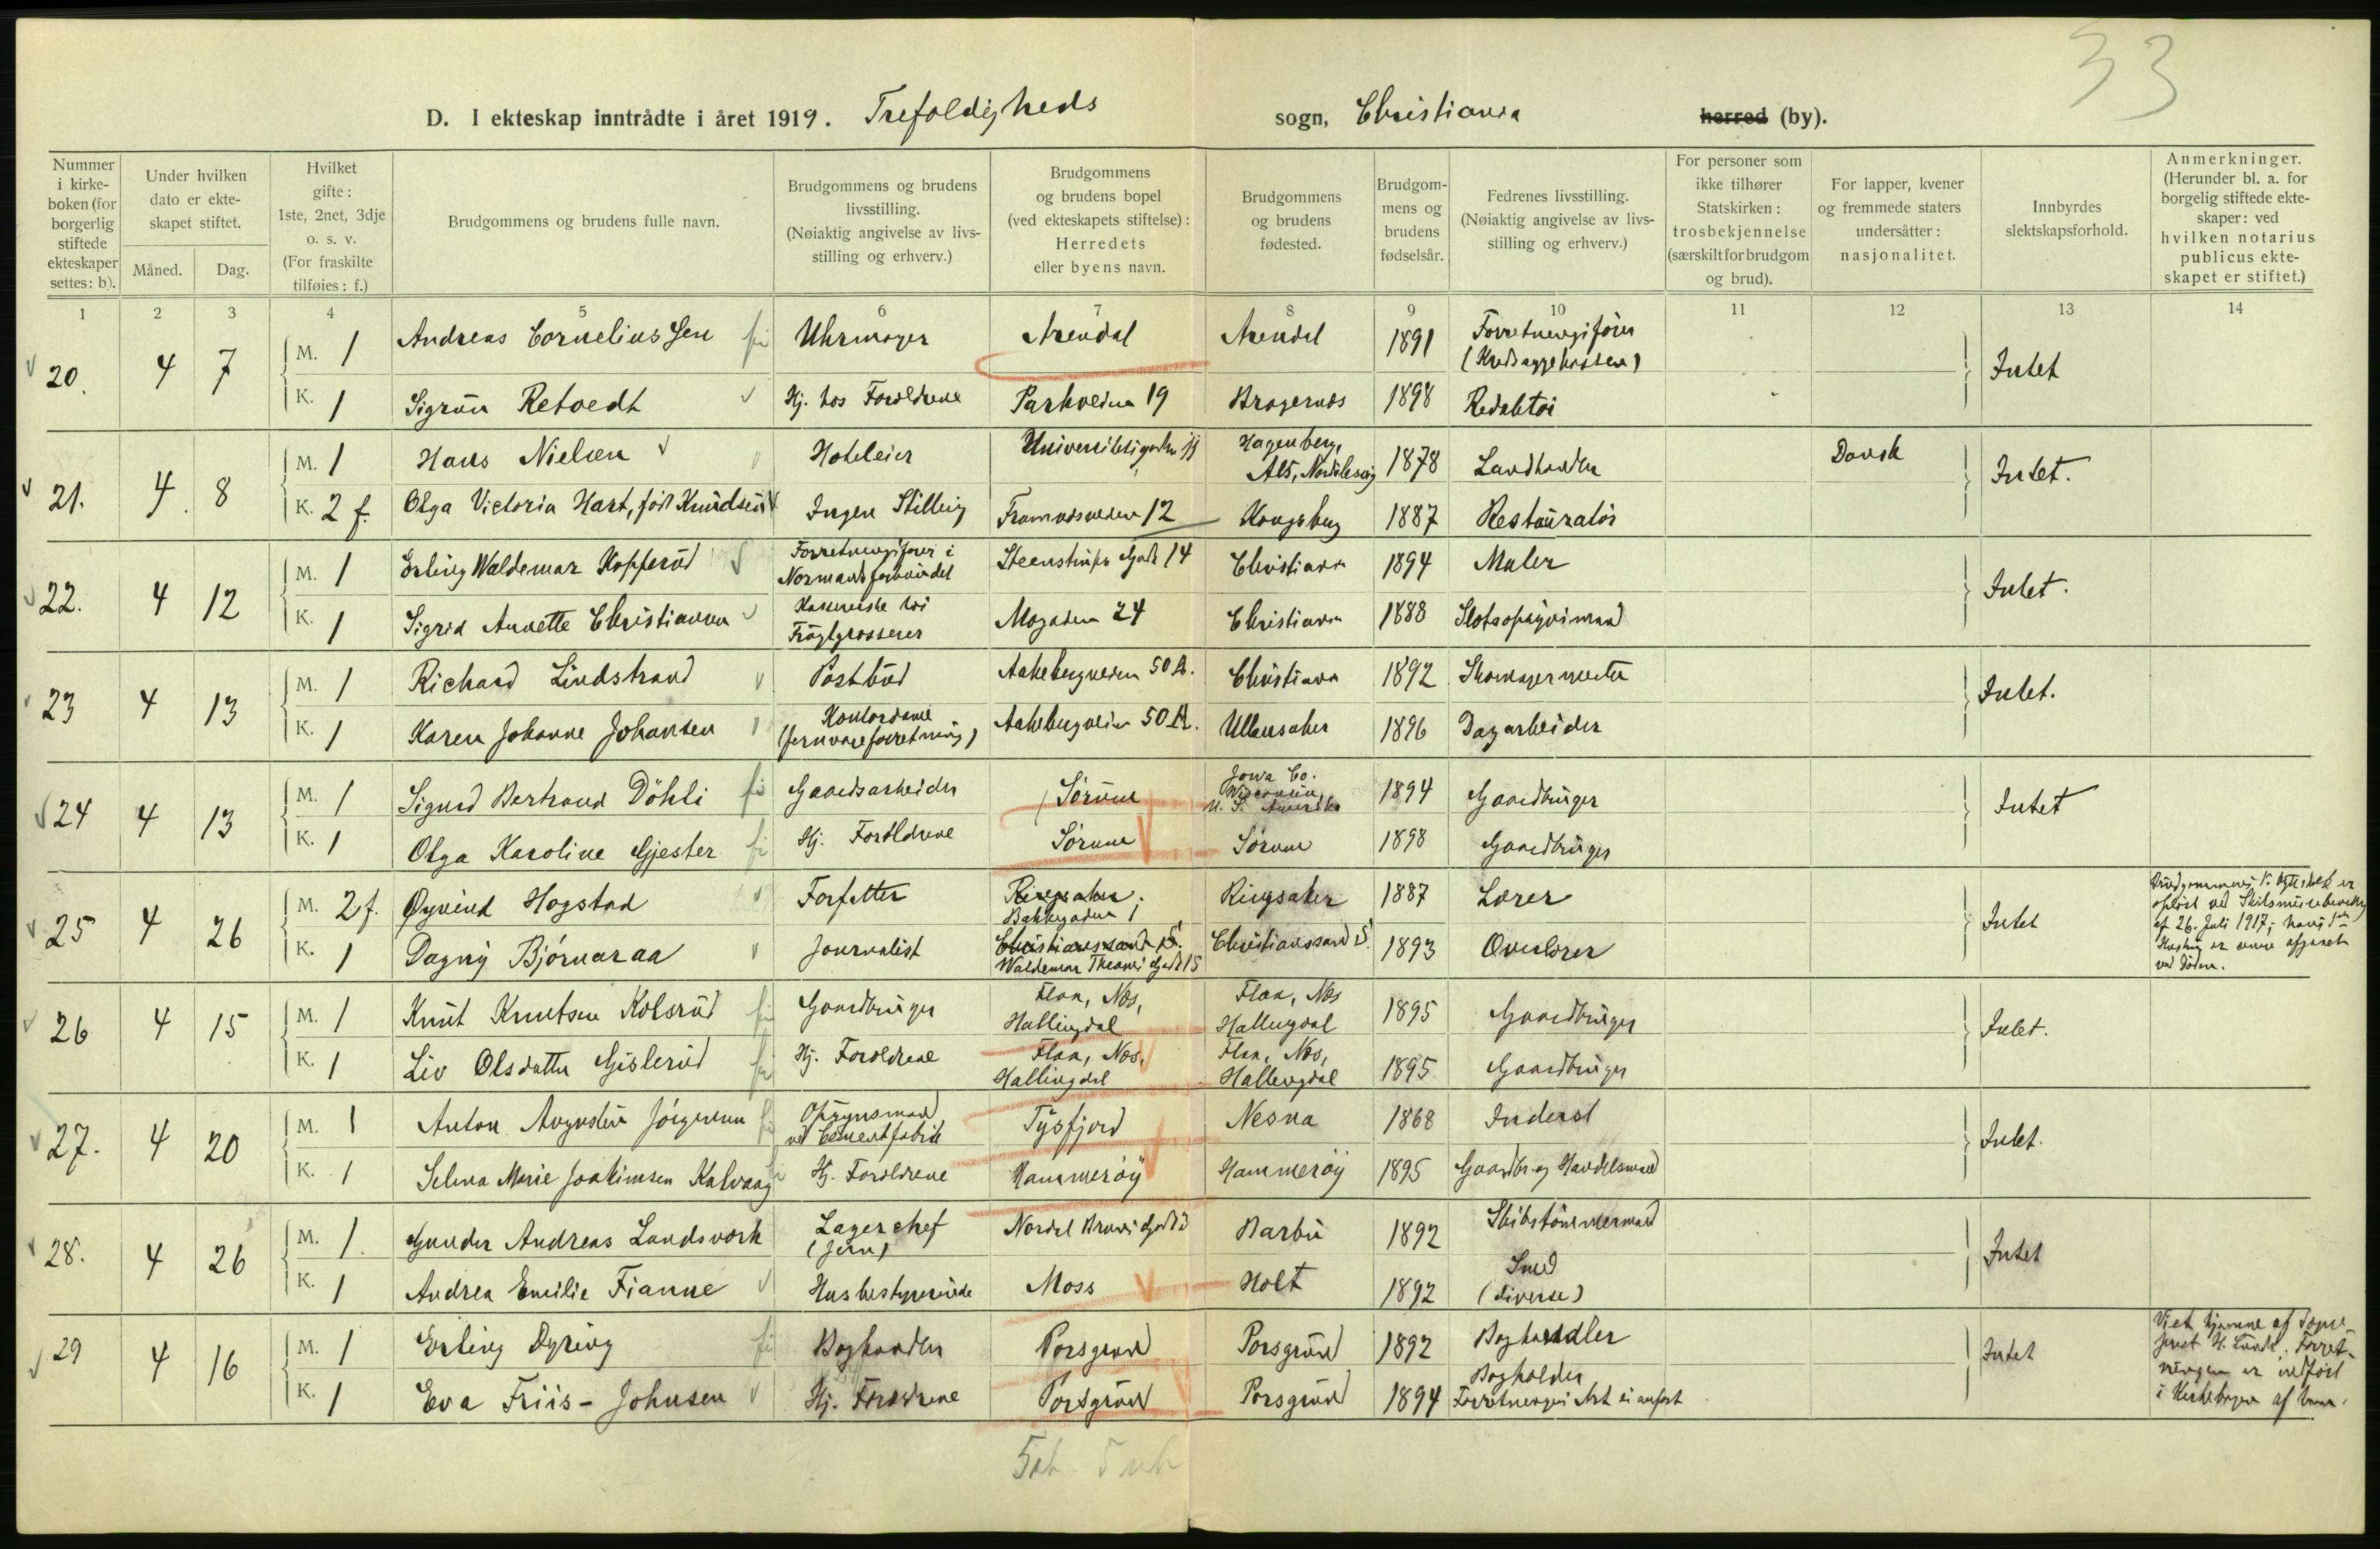 33
D. I ekteskap inntrådte i året 1919. Trefoldigheds sogn, Christiania herred (by).
Nummer i kirke-boken (for borgerlig stiftede ekteskaper settes: b).
Under hvilken dato er ekte-skapet stiftet.
Måned. Dag.
Hvilket gifte: 1ste, 2net, 3dje o. s. v. (For fraskilte tilføies: f.)
Brudgommens og brudens fulle navn.
Brudgommens og brudens livsstilling. (Nøiaktig angivelse av livs-stilling og erhverv.)
Brudgommens og brudens bopel (ved ekteskapets stiftelse): Herredets eller byens navn.
Brudgommens og brudens fødested.
Brudgom-mens og brudens fødselsår.
Fedrenes livsstilling. (Nøiaktig angivelse av livs-stilling og erhverv.)
For personer som ikke tilhører Statskirken: trosbekjennelse (særskilt for brudgom og brud).
For lapper, kvener og fremmede staters undersåtter: nasjonalitet.
Innbyrdes slektskapsforhold.
Anmerkninger. (Herunder bl. a. for borgelig stiftede ekte-skaper: ved hvilken notarius publicus ekte-skapet er stiftet.)
1 2 3 4 5 6 7 8 9 10 11 12 13 14
20. 4 7 M. 1 Andreas Corneliussen Uhrmager Arendal Arendal 1891 Forretningsfører (Kredsygekassen) Intet
K. 1 Sigrun Retvedt Hj. hos Forældrene Parkveien 19 Bragernes 1898 Redaktør
21. 4 8 M. 1 Hans Nielsen Hoteleier Universitetsgaden Hagenberg, Als, Nordslesvig 1878 Landhandler Dansk Intet.
K. 2 f. Olga Victoria Hart, født Knudsen Ingen Stilling Framnæsveien 12 Kongsberg 1887 Restauratør
22. 4 12 M. 1 Erling Waldemar Kopperud Forretningsfører i Normandsforbundet Steenstrups Gade 14 Christiania 1894 Maler Intet.
K. 1 Sigrid Annette Christiansen Kassererske hos Frugtgrosserer Mogaden 24 Christiania 1888 Slotsopsynsmand
23 4 13 M. 1 Richard Lindstrand Postbud Aakebergveien 50 A. Christiania 1892 Skomagermester Intet.
K. 1 Karen Johanne Johansen Kontordame (Jernvareforretning) Aakebergveien 50 A. Ullensaker 1896 Dagarbeider
24 4 13 M. 1 Sigurd Bertrand Döhli Gaardsarbeider Sørum Iowa Co. Wisconsin, U. S. Amerika 1894 Gaardbruger Intet
K. 1 Olga Karoline Gjester Hj. Forældrene Sørum Sørum 1898 Gaardbruger
25 4 26 M. 2 f. Øyvind Hogstad Forfatter Ringsaker. Bakkegaden 1 Ringsaker 1887 Lærer Intet Brudgommens 1. Ægteskab er opløst ved Skilsmissebevilling af 26. Juli 1917; hans 1ste Hustru er senere afgaaet ved Døden.
K. 1 Dagny Bjørnaraa Journalist Christianssand S. Waldemar Thranes Gade 15 Christianssand S. 1893 Overlærer
26 4 15 M. 1 Knut Knutsen Kolsrud Gaardbruger Flaa, Nes, Hallingdal Flaa, Nes Hallingdal 1895 Gaardbruger Intet.
K. 1 Liv Olsdatter Gislerud Hj. Forældrene Flaa, Nes, Hallingdal Flaa, Nes, Hallingdal 1895 Gaardbruger
27. 4 20 M. 1 Anton Augustin Jørgensen Opsynsmand ved Cementfabrik Tysfjord Nesna 1868 Inderst Intet.
K. 1 Selma Marie Joakimsen Kalvaag Hj. Forældrene Hammerøy Hammerøy 1895 Gaardbr. og Handelsmand
28. 4 26 M. 1. Gunder Andreas Landsværk Lagerchef (Jern) Nordal Bruns Gade Barbu 1892 Skibstømmermand Intet
K. 1 Andrea Emilie Fianne Husbestyrerinde Moss Holt 1892 Smed (diverse)
29 4 16 M. 1 Erling Dyring Boghandler Porsgrund Porsgrund 1892 Boghandler Intet Viet hjemme af Sogneprest H. Lunde. Forretningen er indført i Kirkebogen af ham.
K. 1 Eva Friis-Johnsen Hj. Forældrene Porsgrund Porsgrund 1894 Bogholder Forretningens Art ei anført